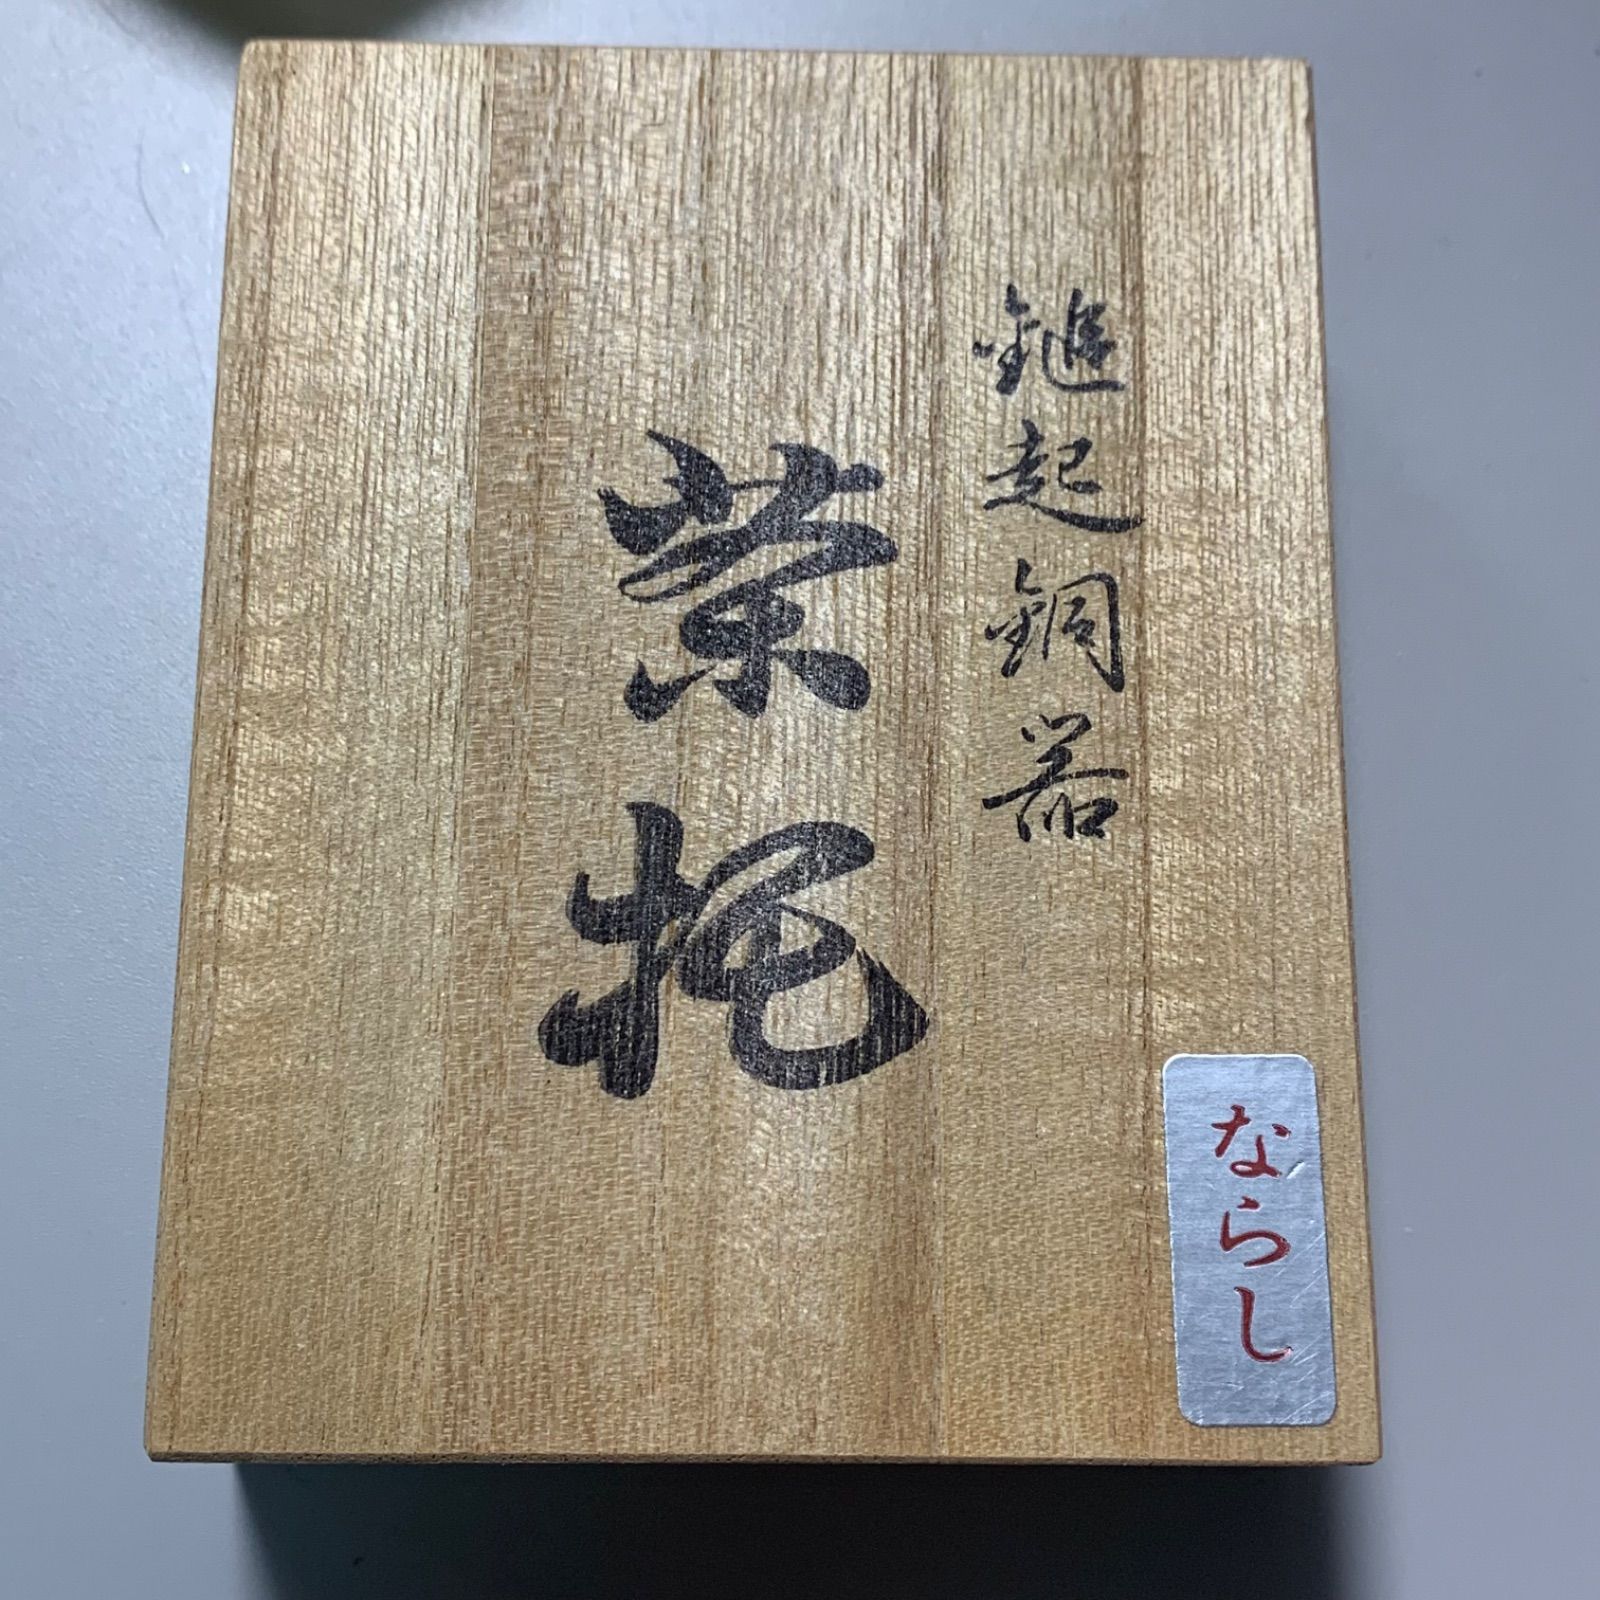 鎚起銅器
茶托
ならし